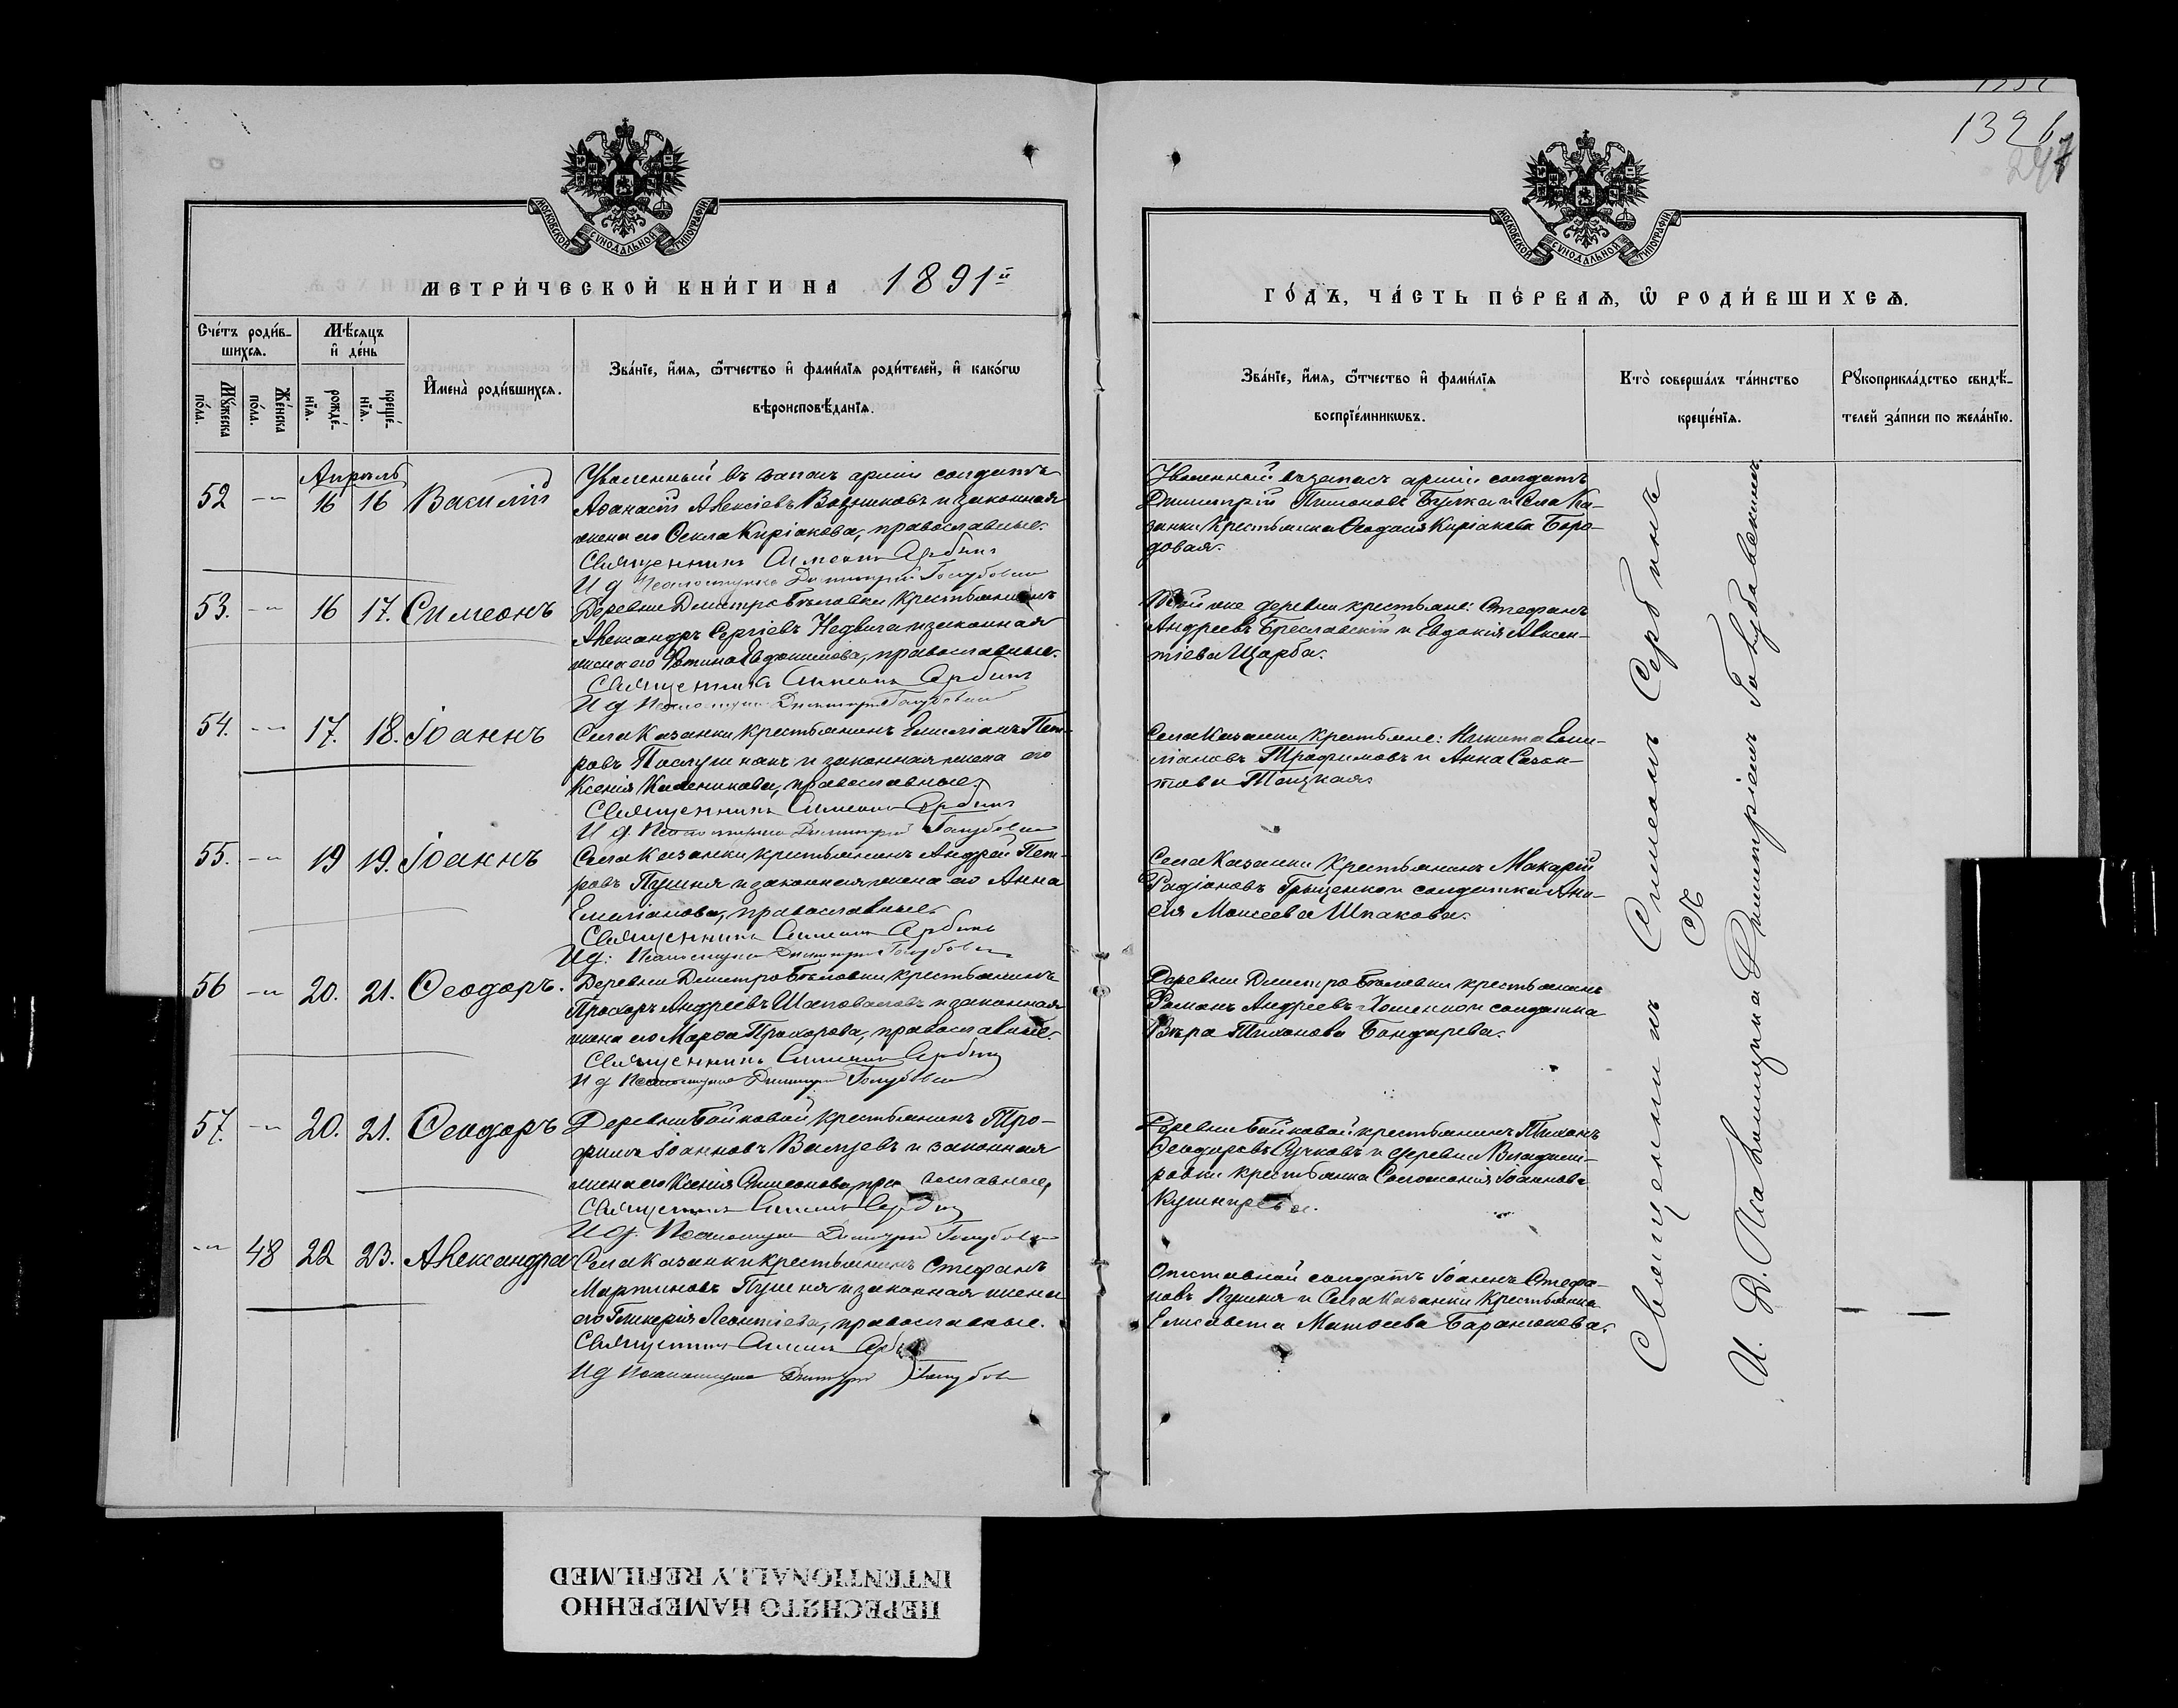 1326
247
МОСКОВСКОЙ СѴНОДАЛЬНОЙ ТИПОГРАФІИ
МОСКОВСКОЙ СѴНОДАЛЬНОЙ ТИПОГРАФІИ
МЕТРИ́ЧЕСКОЙ КНИ́ГИ НА 1891й
ГО́ДЪ, ЧА́СТЬ ПЕ́РВАѦ, Ѡ҆ РОДИ́ВШИХСѦ.
Сче́тъ роди́в-
шихсѧ.
Мꙋ́жеска
по́ла.
Же́нска
по́ла.
Мѣ́сѧцъ
и҆ де́нь
рожде́-
нїѧ.
креще́-
нїѧ.
И҆мена̀ роди́вшихсѧ.
Зва́нїе, и҆́мѧ, ѻ҆́тчество и҆ фами́лїѧ роди́телей, и҆ како́гѡ
вѣроисповѣ́данїѧ.
Зва́нїе, и҆́мѧ, ѻ҆́тчество и҆ фами́лїѧ
воспрїе́мникѡвъ.
Кто̀ соверша́лъ та́инство
креще́нїѧ.
Рꙋкоприкла́дство свидѣ́-
телей за́писи по жела́нїю.
Апрѣль
52 -"- 16 16 Василій
Уволенный въ запасъ арміи солдатъ
Аѳанасій Алексіевъ Водяниковъ и законная
жена его Ѳекла Киріакова, православные.
Священникъ Симеонъ Сербинъ
И д Псаломщика Димитрій Голубовскій
Уволенный въ запасъ арміи солдатъ
Димитрій Тимоновъ Булка и Села Ка-
занки крестьянка Ѳеодосія Киріакова Боро-
довая.
53. -"- 16 17. Симеонъ
Деревни Дмитро-Бѣловки крестьянинъ
Александръ Сергіевъ Недвига и законная
жена его Фотина Евдокимова, православные.
Священникъ Симеонъ Сербинъ
И д Псаломщика Димитрій Голубовскій
Той же деревни крестьяне: Стефанъ
Андреевъ Бреславскій и Евдокія Авксен-
тіева Щарба.
54. -"- 17. 18. Іоаннъ
Села Казанки крестьянинъ Емиліанъ Пет-
ровъ Послушнакъ и законная жена его
Ксенія Калиникова, православные.
Священникъ Симеонъ Сербинъ
И д. Псаломщика Димитрій Голубовскій
Села Казанки крестьяне: Никита Еми-
ліановъ Трофимовъ и Анна Созон-
това Тоцкая.
55. -"- 19 19. Іоаннъ
Села Казанки крестьянинъ Андрей Пет-
ровъ Пушня и законная жена его Анна
Емиліанова, православные.
Священникъ Симеонъ Сербинъ
И д: Псаломщика Димитрій Голубовскій
Села Казанки крестьянинъ Макарій
Радіоновъ Грыценко и солдатка Ани-
сія Моисеева Шпакова.
56 -"- 20. 21. Ѳеодоръ.
Деревни Дмитро-Бѣловки крестьянинъ
Прохоръ Андреевъ Шаповаловъ и законная
жена его Марѳа Прохорова, православные.
Священникъ Симеонъ Сербинъ
И д Псаломщика Димитрій Голубовскій
Деревни Дмитро-Бѣловки крестьянинъ
Романъ Андреевъ Хоменко и солдатка
Вѣра Тихонова Бондарева.
57. -"- 20. 21. Ѳеодоръ
Деревни Бойковой крестьянинъ Тро-
фимъ Іоанновъ Вальцевъ и законная
жена его Ксенія Симеонова, православные,
Священникъ Симеонъ Сербинъ
И д. Псаломщика Димитрій Голубовскій
Деревни Бойковой крестьянинъ Тихонъ
Ѳеодоровъ Сучковъ и деревни Владими-
ровки крестьянка Соломонія Іоаннова
Кушнирева.
-"- 48 22 23. Александра
Села Казанки крестьянинъ Стефанъ
Мартиновъ Пушня и законная жена
его Гликерія Леонтіева, православные.
Священникъ Симеонъ Сербинъ
И д Псаломщика Димитрій Голубов
Отставной солдатъ Іоаннъ Стефа-
новъ Пушня и Села Казанки крестьянка
Елисавета Матѳеева Барансокова.
Священникъ Симеонъ Сербинъ
Съ
И. Д. Псаломщика Димитріемъ Голубовскимъ.
ПЕРЕСНЯТО НАМЕРЕННО
INTENTIONALLY REFILMED